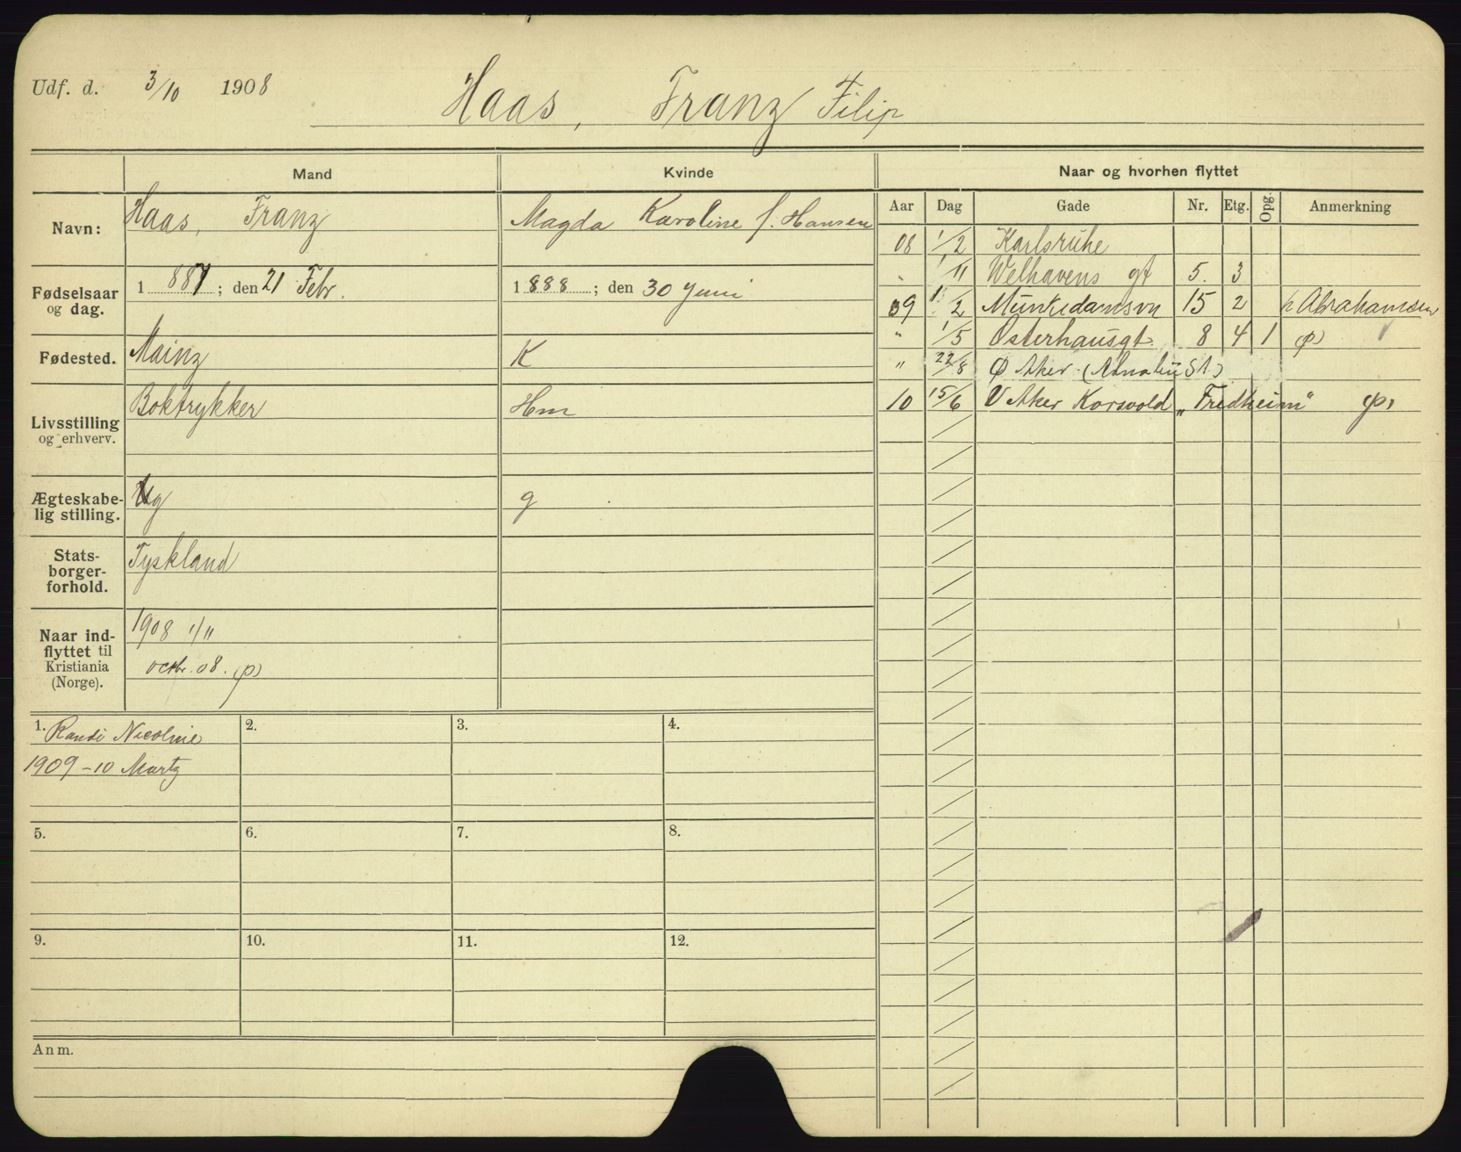 Udf. d. 3/10 1908 Haas, Franz Filip
Mand Kvinde Naar og hvorhen flyttet
Aar Dag Gade Nr. Etg. Opg. Anmerkning
Navn: Haas, Franz Magda Karoline f. Hansen
08 1/2 Karlsruhe
" 1/11 Welhavens gt 5. 3
Fødselsaar og dag. 1887; den 21 Febr. 1888; den 30 Juni
09 1/2 Munkedamsvn 15 2 h Abrahamsen
" 1/5 Osterhausgt. 8 4 1
Fødested. Mainz K
" 22/8 Ø Aker
Livsstilling og erhverv. Boktrykker Hm
10 15/6 V Aker Korsvold "Fredheim"
Ægteskabelig stilling. Ug g
Statsborgerforhold. Tyskland
Naar indflyttet til Kristiania (Norge). 1908 1/11
octbr. 08.
1. Randi Nicoline
1909-10 Marts
2.
3.
4.
5.
6.
7.
8.
9.
10.
11.
12.
Anm.